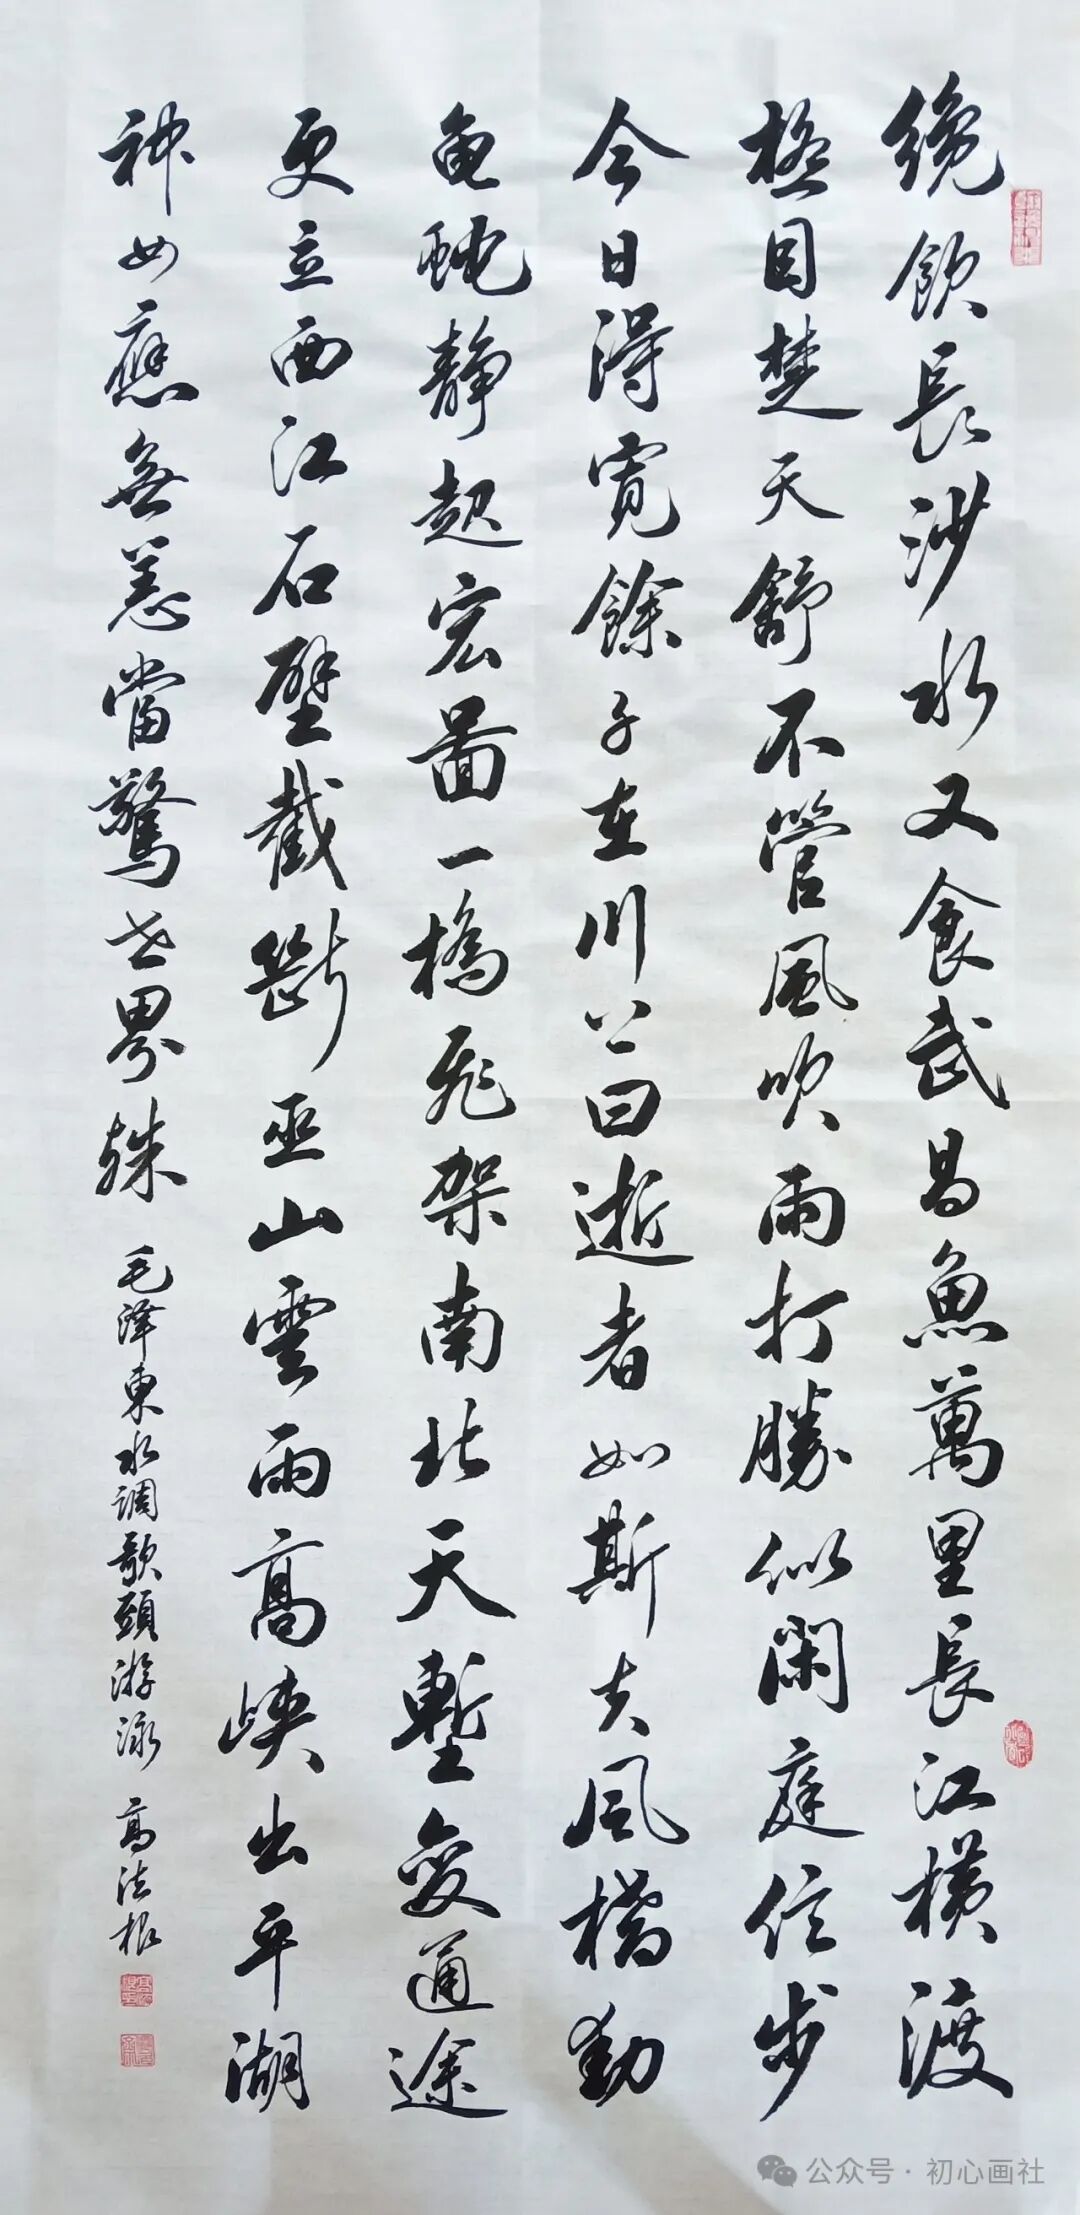 纔飲長沙水又食武昌魚萬里長江橫渡
極目楚天舒不管風吹雨打勝似閑庭信步
今日得寬餘子在川上曰逝者如斯夫風檣動
龟蛇靜起宏圖一橋飛架南北天塹變通途
更立西江石壁截斷巫山雲雨高峽出平湖
神女應無恙當驚世界殊
毛泽東水调歌頭游泳 高法根
公众号·初心画社